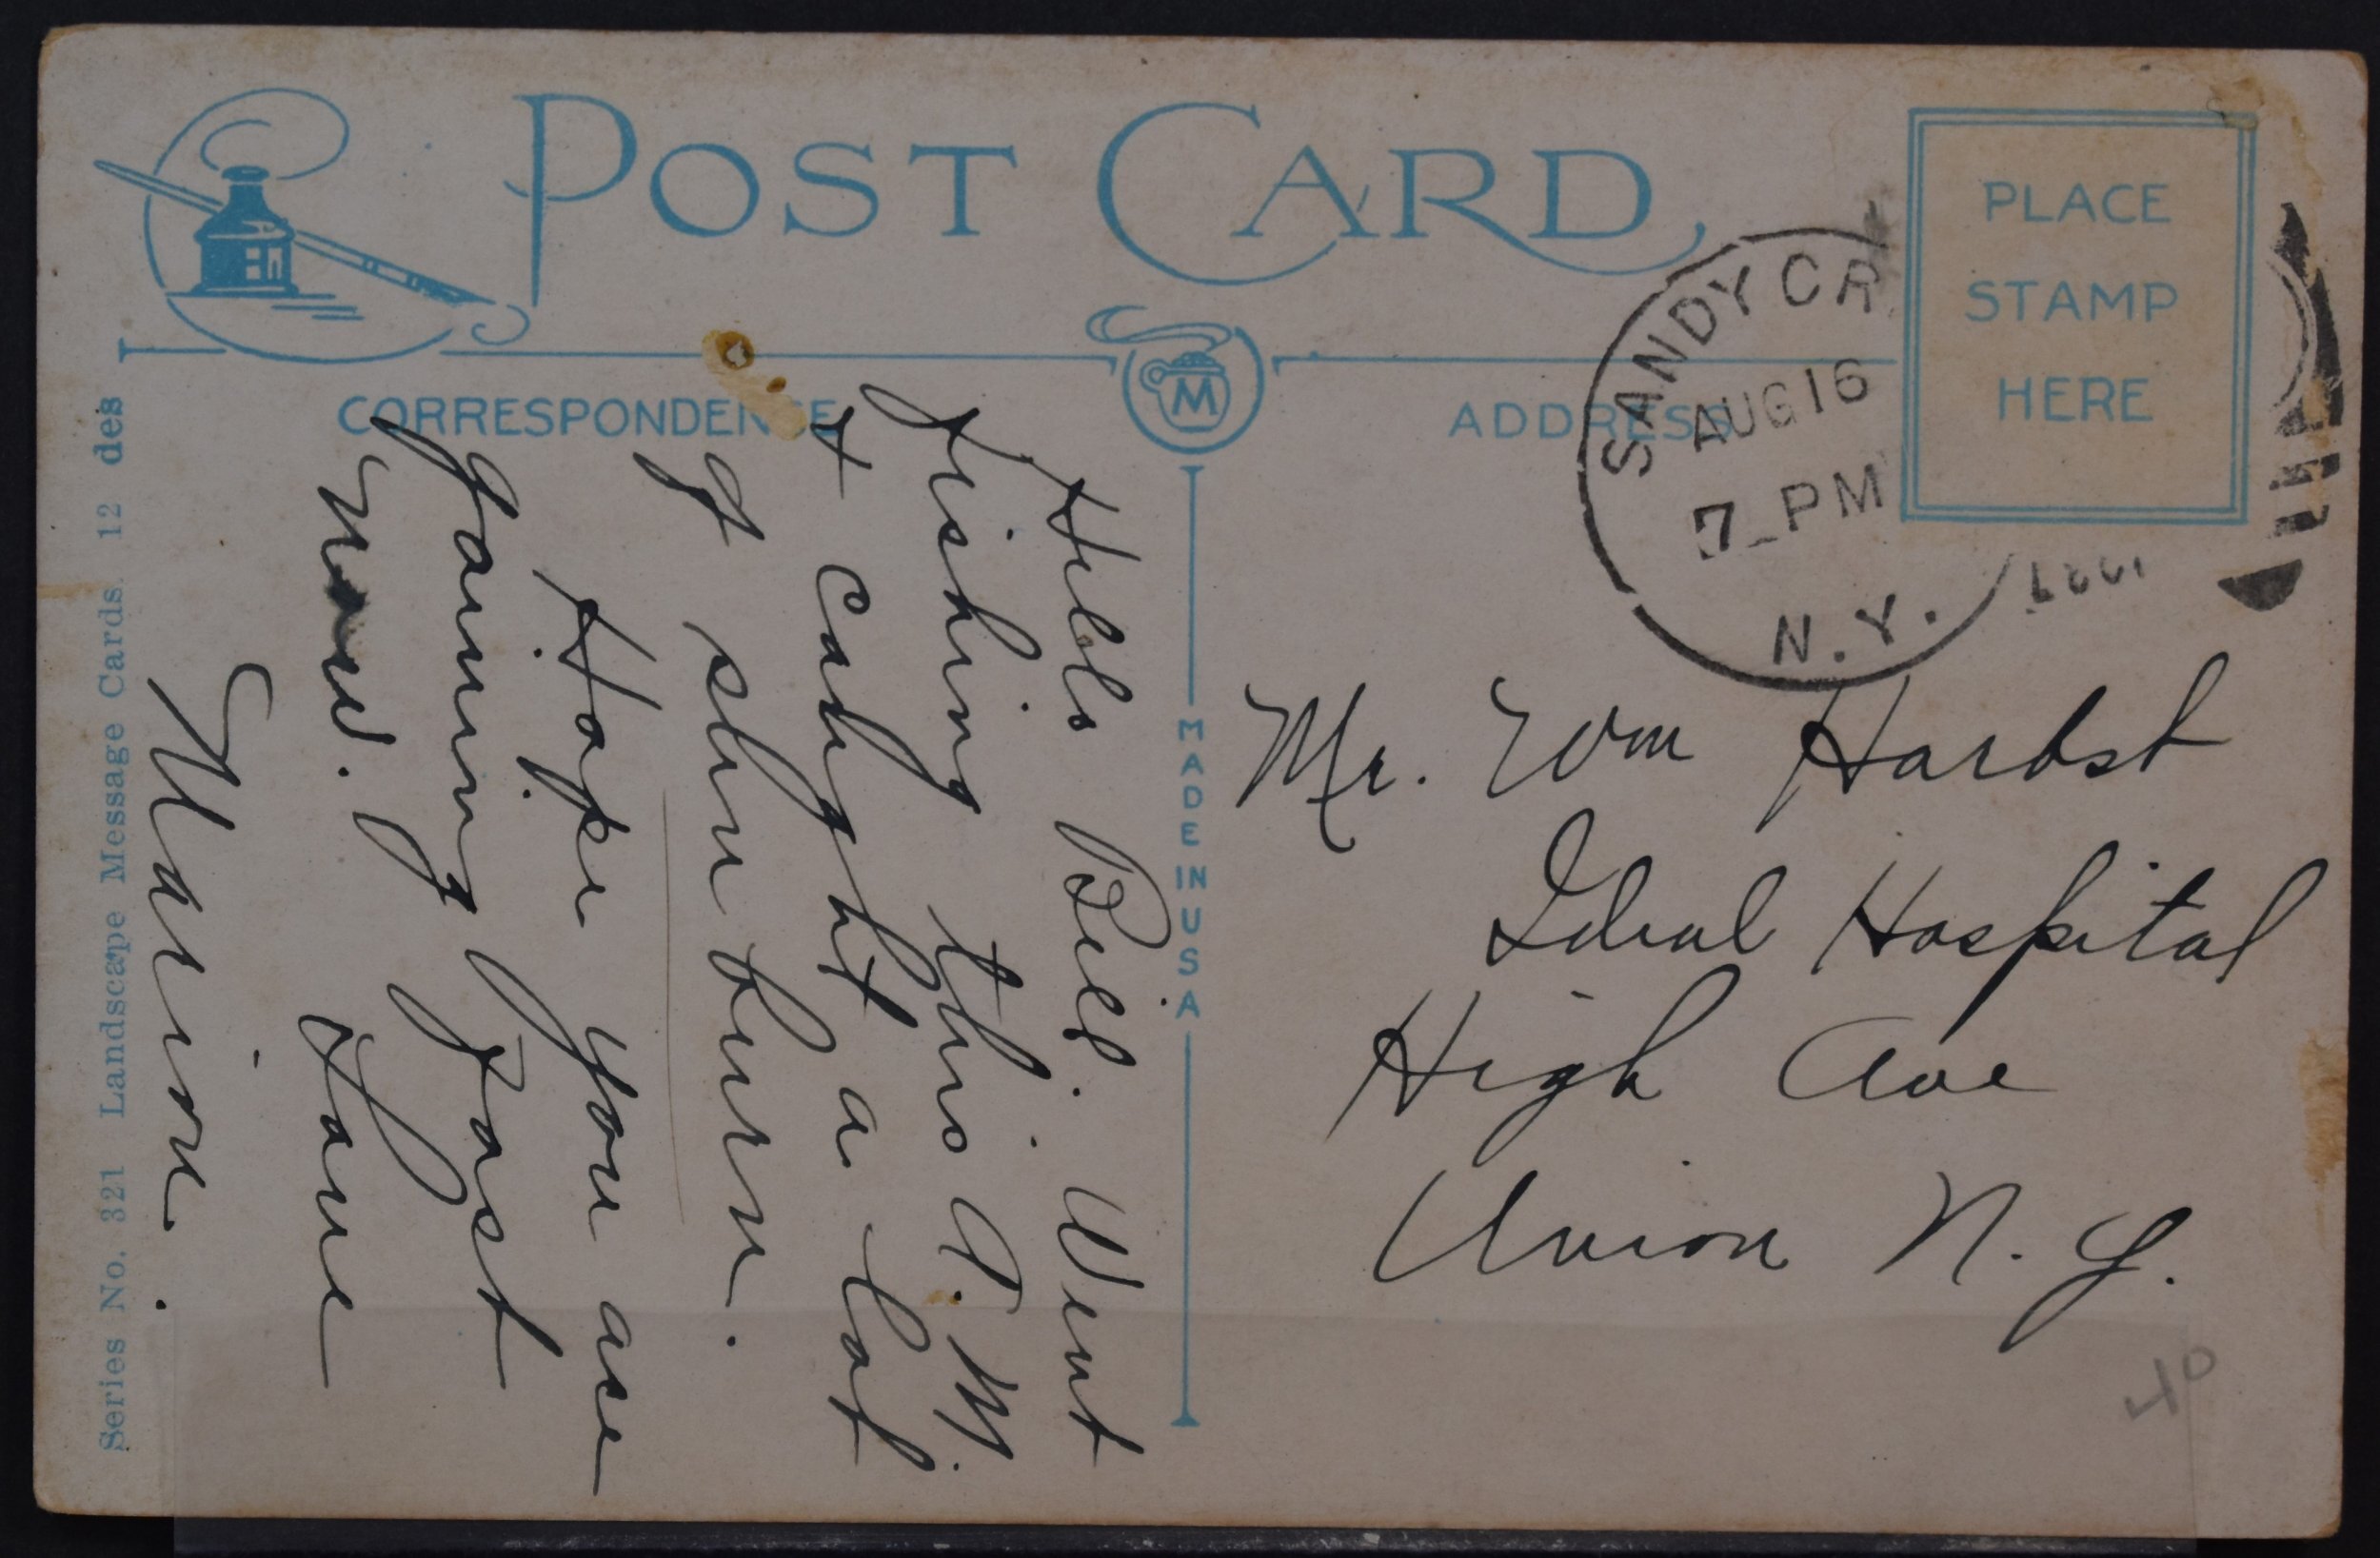 POST CARD
PLACE
STAMP
HERE
SANDY CR
AUG 16
7-PM
N.Y.
CORRESPONDENCE
ADDRESS
M
MADE IN USA
Series No. 321 Landscape Message Cards. 12 des
Hello Bill. Went
fishing this A. M.
+ caught a lot
of sun burn.
Hope you are
gaining fast
now. Love
Marion.
Mr. Wm Harbst
Ideal Hospital
High Ave
Union N. Y.
40